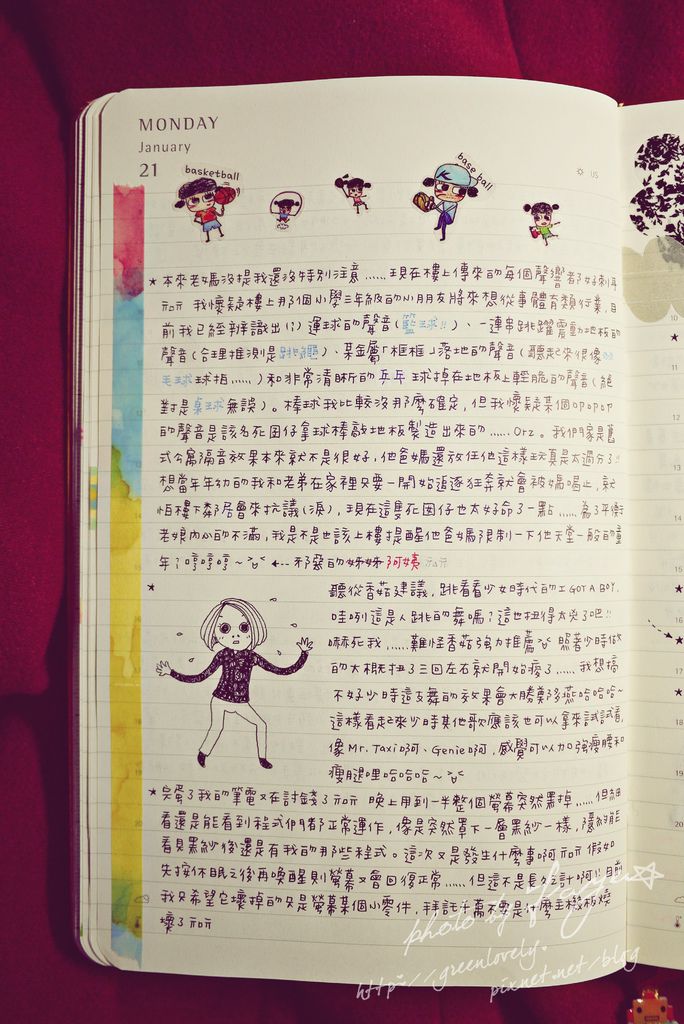 MONDAY
January
21
basketball
base ball
US
★本來老媽沒提我還沒特別注意……現在樓上傳來的每個聲響都好刺耳
我懷疑樓上那個小學三年級的小朋友將來想從事體育類行業,目
前我已經辨識出(!)運球的聲音(籃球!!)、一連串跳躍震動地板的
聲音(合理推測是跳繩)、某金屬「框框」落地的聲音(聽起來很像
毛球球拍……)和非常清晰的乒乓球掉在地板上輕脆的聲音(絕
對是桌球無誤)。棒球我比較沒那麼確定,但我懷疑某個叩叩叩
的聲音是該名死囝仔拿球棒敲地板製造出來的……Orz。我們家是舊
式公寓隔音效果本來就不是很好,他爸媽還放任他這樣玩真是太過分了!!
想當年年幼的我和老弟在家裡只要一開始追逐狂奔就會被媽喝止,就
怕樓下鄰居會來抗議(淚),現在這隻死囝仔也太好命了一點……為了平衡
老娘內心的不滿,我是不是也該上樓提醒他爸媽限制一下他天堂一般的童
年?哼哼哼~ ←--邪惡的姊姊阿姨
★
聽從香菇建議,跳看看少女時代的I GOT A BOY,
哇咧這是人跳的舞嗎?這也扭得太兇了吧!!
嚇死我……難怪香菇強力推薦 照著少時做
的大概扭了三回左右就開始痠了……我想搞
不好少時這支舞的效果會大勝鄭多燕哈哈哈~
這樣看起來少時其他歌應該也可以拿來試試看,
像Mr. Taxi啊、Genie啊,感覺可以加強瘦腰和
瘦腿哩哈哈哈~
★完蛋了我的筆電又在討錢了 晚上用到一半整個螢幕突然黑掉……但細
看還是能看到程式們都正常運作,像是突然罩下一層黑紗一樣,隱約能
看見黑紗後還是有我的那些程式。這次又是發生什麼事啊 假如
先按休眠之後再喚醒則螢幕又會回復正常……但這不是長久之計啊!!目前
我只希望它壞掉的只是螢幕某個小零件,拜託千萬不要是什麼主機板燒
壞了
photo by
http://greenlovely.
pixnet.net/blog
10
11
12
13
14
15
16
17
18
19
20